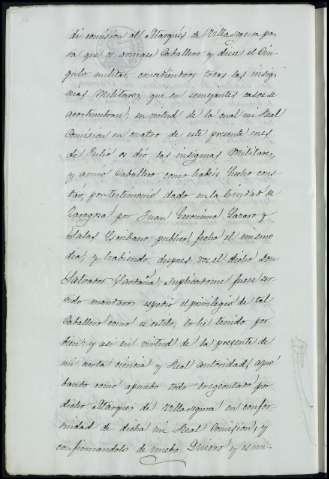 de comision al Marques de Villasegura pa-
ra que os armase Caballero y diese el Cin-
gulo militar, concediendoos todas las insig-
nias Militares, que en semejantes casos se
acostumbran: en virtud de la cual mi Real
Comision en cuatro de este presente mes
de Julio os dio las insignias Militares,
y armó Caballero como habeis hecho cons-
tar, por testimonio dado en la Ciudad de
por Juan Geronimo y
Salas Escribano publico, fecho el mismo
dia; y habiendo despues vos el dicho Don
Salvador Suplicadome fuese ser-
vido mandaros espedir el privilegio de tal
Caballero como se estila, lo he tenido por
bien; y asi en virtud de la presente de
mi cierta ciencia y Real autoridad, apro-
bando como apruebo todo lo egecutado por
dicho Marques de Villasegura en confor-
midad de dicha mi Real Comision, y
confirmandolo de nuevo, Quiero y es mi